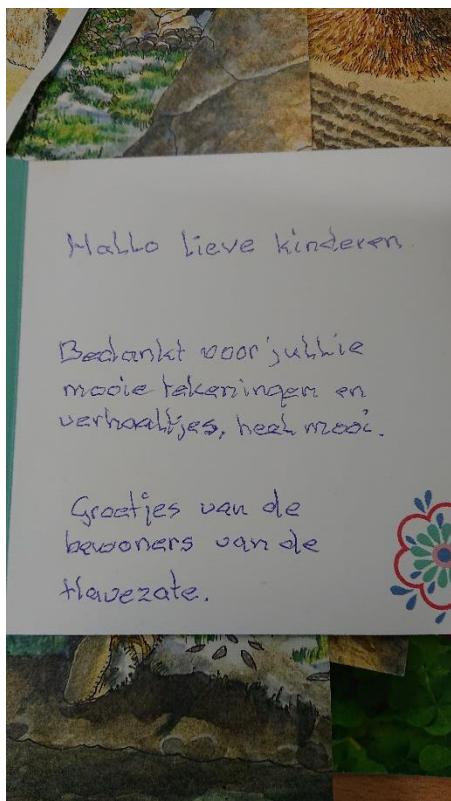 Hallo lieve kinderen
Bedankt voor jullie
mooie tekeningen en
verhaaltjes, heel mooi.
Groetjes van de
bewoners van de
Havezate.